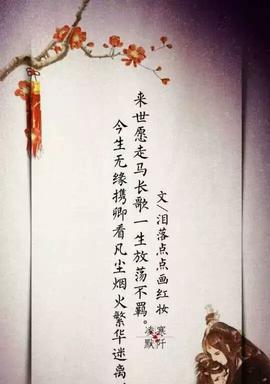 文/泪落点点画红妆
来世愿走马长歌一生放荡不羁。
今生无缘携卿看凡尘烟火繁华迷离
寒阡
凑默